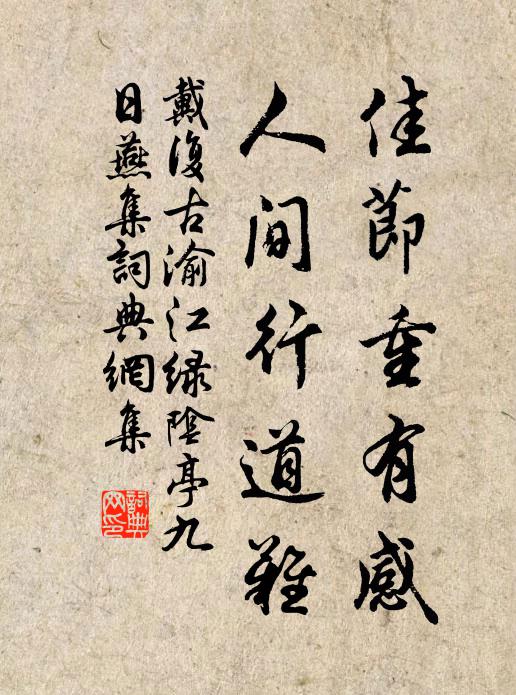 佳節重有感
人間行道難
戴復古渝江綠陰亭九
日燕集詞典網集
詞典网印